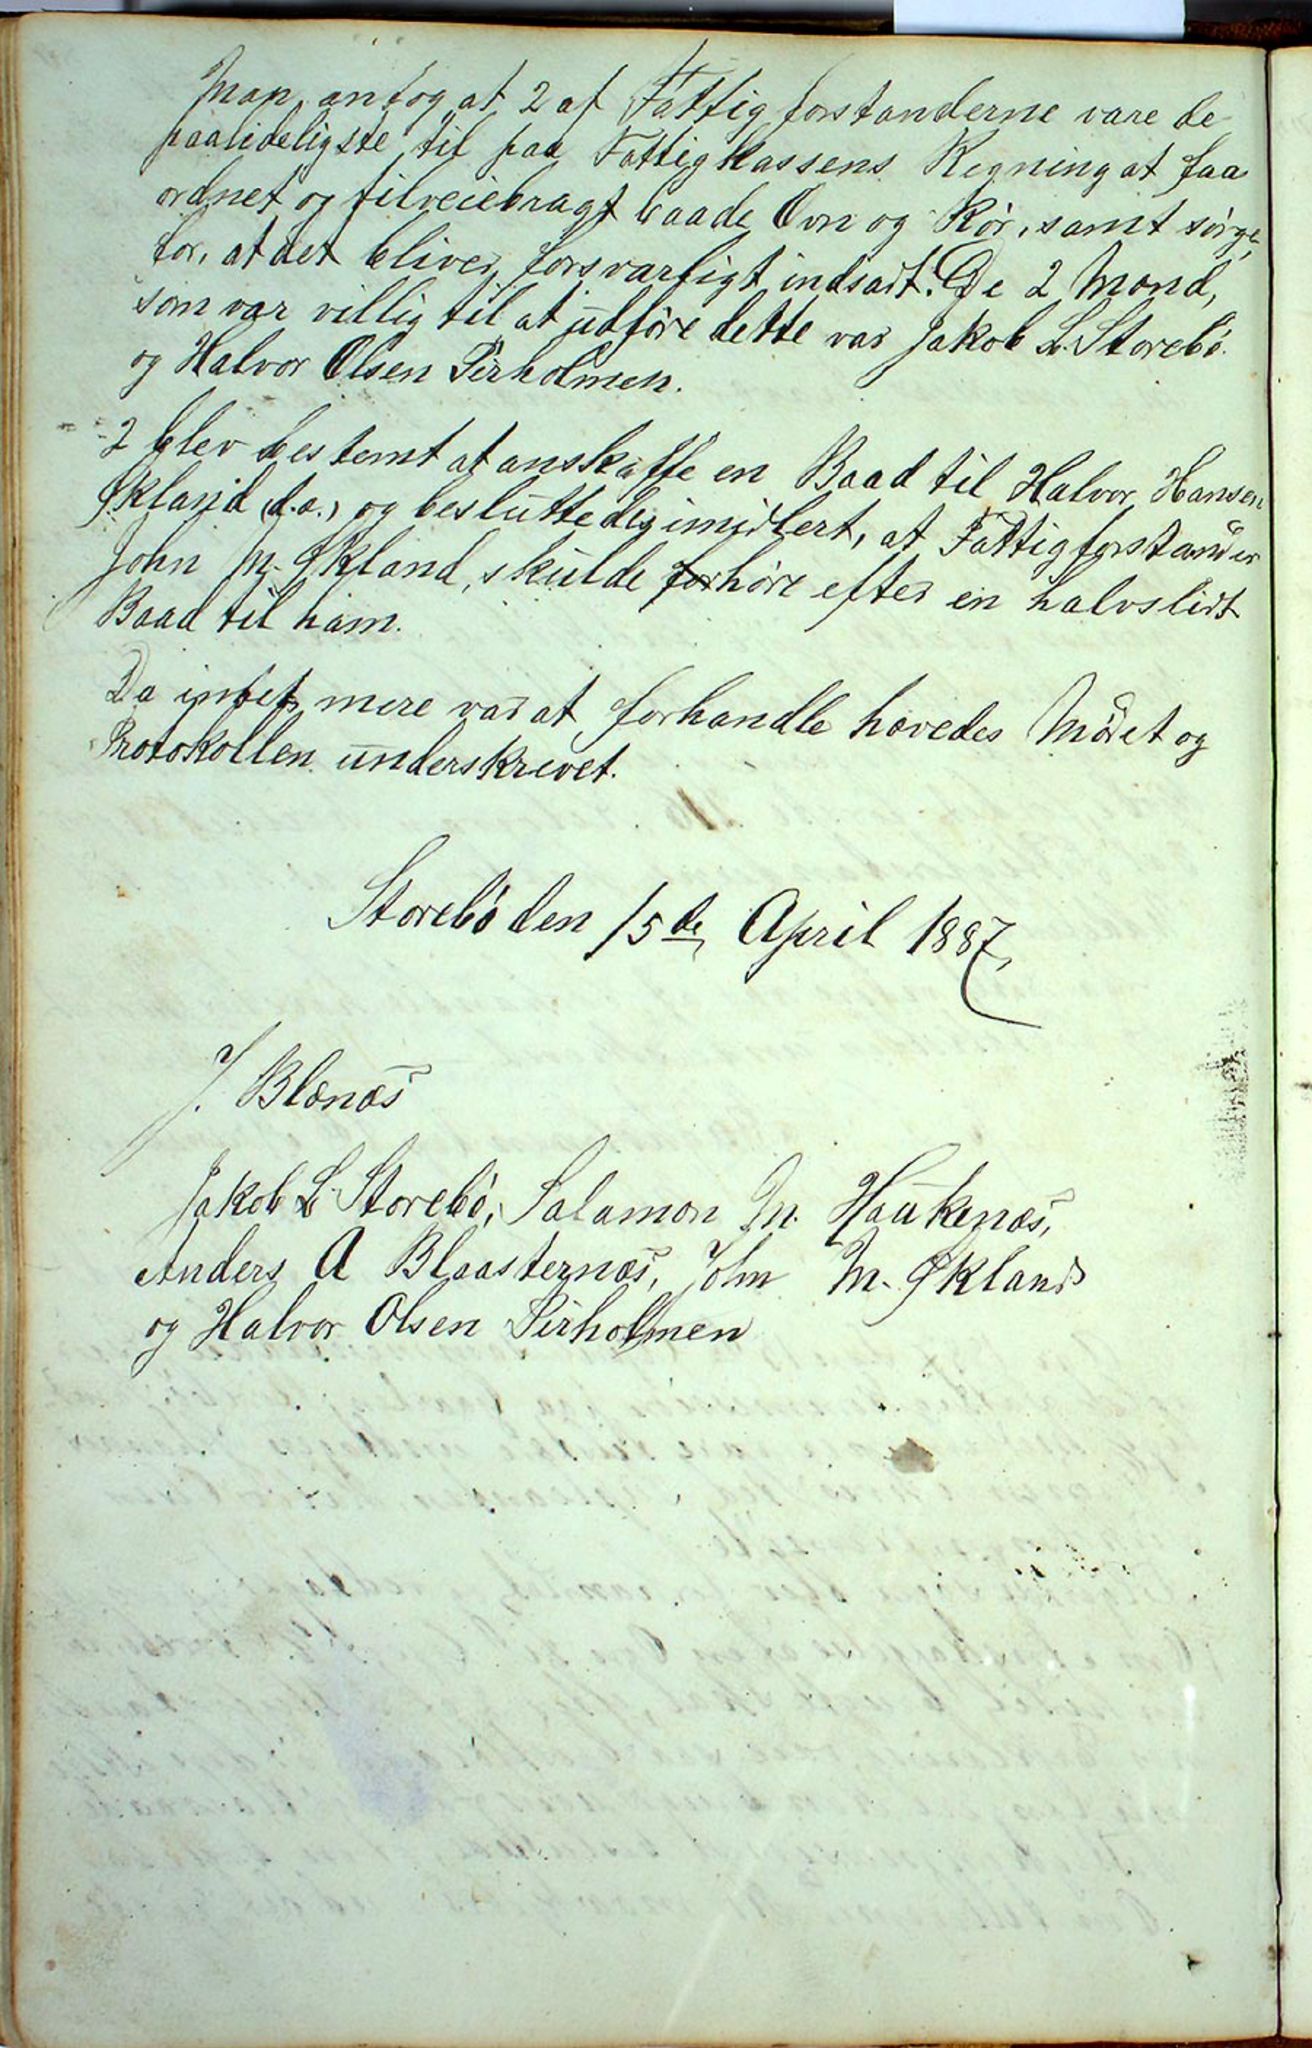 Man antog at 2 af Fattigforstanderne vare de
paalideligste til paa Fattigkassens Regning at faa
ordnet og tilveiebragt baade Ovn og Rör, samt sörge
for, at det bliver forsvarligt indsadt. De 2 Mænd,
som var villig til at udföre dette var Jakob L. Storebö
og Halvor Olsen Pirholmen.
2 blev bestemt at anskaffe en Baad til Halvor Hansen
Økland (d.æ.) og besluttedes imidlert, at Fattigforstander
John M. Økland, skulde forhöre efter en halvslidt
Baad til ham.
Da intet mere var at forhandle hævedes Mödet og
Protokollen underskrevet.
Storebö den 15de April 1887,
J. Blænæs
Jakob L. Storebö, Salamon M. Haukenæs,
Anders A Blaasternæs, John M. Økland
og Halvor Olsen Pirholmen